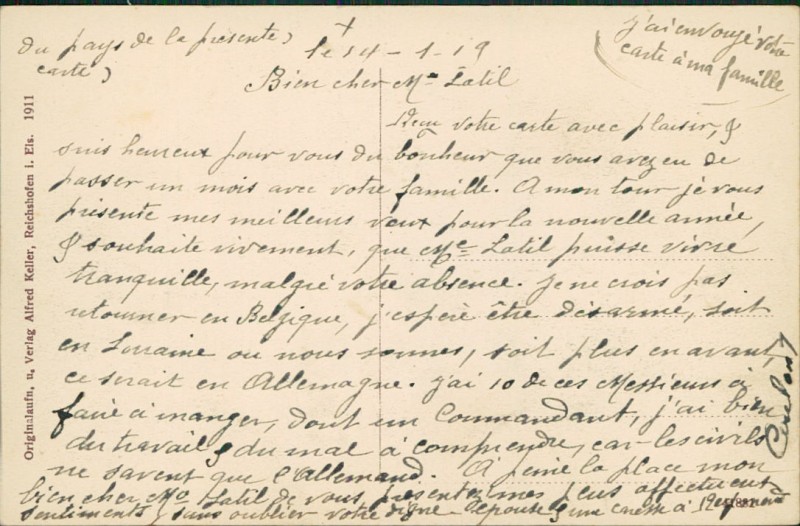 Du pays de la présente
carte)
le 14 - 1 - 19
j'ai envoyé votre
carte à ma famille
Bien cher Mr Latil
Reçu votre carte avec plaisir, &
suis heureux pour vous du bonheur que vous avez eu de
passer un mois avec votre famille. A mon tour je vous
présente mes meilleurs vœux pour la nouvelle année,
& souhaite vivement, que Me Latil puisse vivre
tranquille, malgré votre absence. Je ne crois pas
retourner en Belgique, j'espère être désarmé, soit
en Lorraine ou nous sommes, soit plus en avant,
ce serait en Allemagne. J'ai 10 de ces Messieurs à
faire à manger, dont un Commandant, j'ai bien
du travail & du mal à comprendre, car les civils
ne savent que l'Allemand. A peine la place mon
bien cher Mr Latil de vous présenter mes plus affectueux
sentiments, sans oublier votre digne épouse & une caresse à
Originalaufn. u. Verlag Alfred Keller, Reichshofen i. Els. 1911